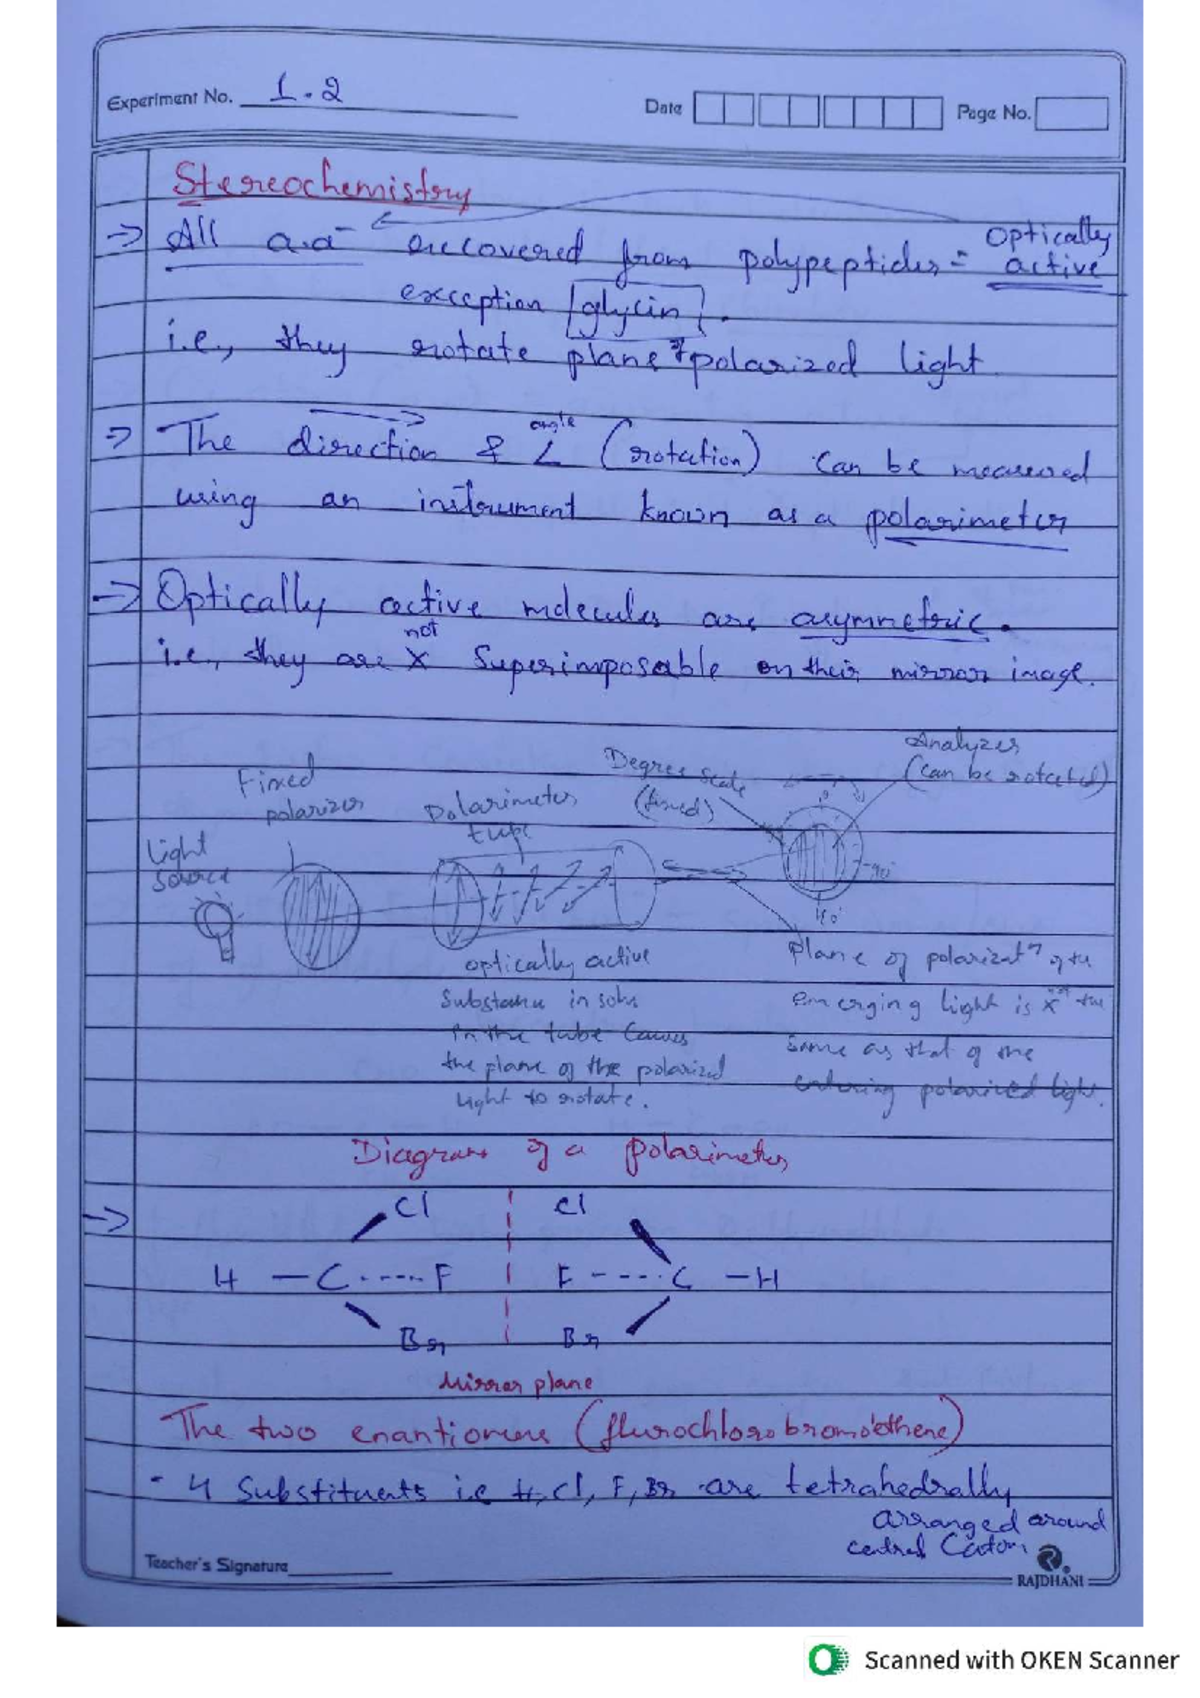 Experiment No. 1.2
Date
Page No.
Stereochemistry
→ All a.a recovered from polypeptides = Optically active
exception [glycin].
i.e., they rotate plane of polarized light
→ The direction & ∠ angle (rotation) can be measured
using an instrument known as a polarimeter
→ Optically active molecules are asymmetric.
i.e., they are X not Superimposable on their mirror image.
Light source
Fixed polarizer
Polarimeter tube
Degree Scale (fixed)
Analyzer (can be rotated)
0°
-90°
180°
optically active
Substance in soln
in the tube Causes
the plane of the polarized
light to rotate.
Plane of polarizatn of the
emerging light is X not the
same as that of the
entering polarized light.
Diagram of a polarimeter
→
Cl Cl
H - C ..... F F - - - . C - H
Br Br
Mirror plane
The two enantiomers (flurochlorobromoethene)
- 4 Substituents i.e H, Cl, F, Br are tetrahedrally
arranged around
central Catom
Teacher's Signature
RAJDHANI
Scanned with OKEN Scanner